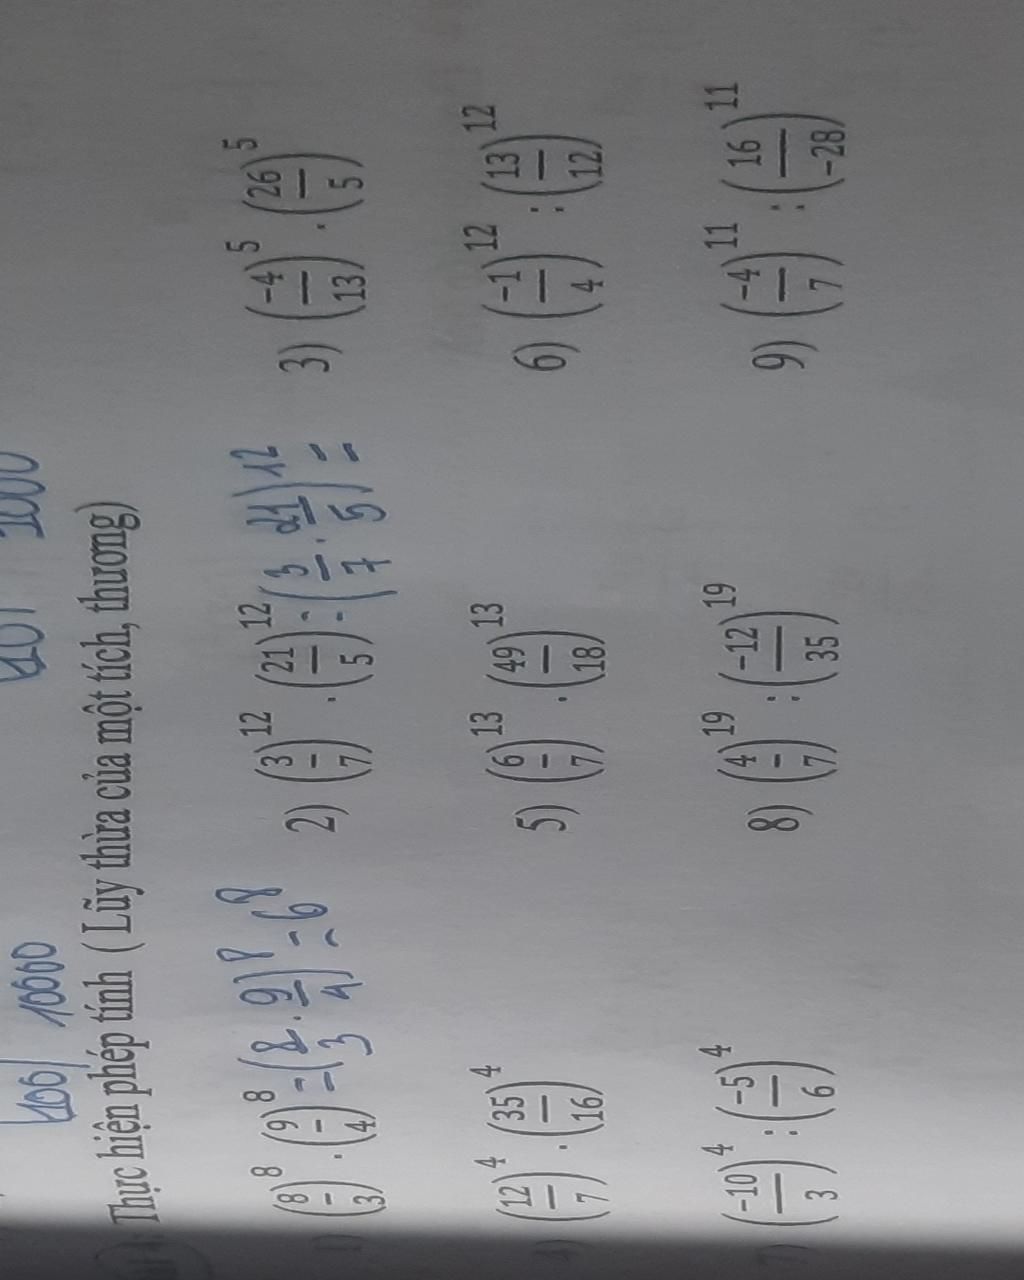 1001 10000 1201 1000
Thực hiện phép tính ( Lũy thừa của một tích, thương)
1) (8/3)^8 . (9/4)^8 = (8/3 . 9/4)^8 = 6^8 2) (3/7)^12 . (21/5)^12 = (3/7 . 21/5)^12 = 3) (-4/13)^5 . (26/5)^5
4) (12/7)^4 . (35/16)^4 5) (6/7)^13 . (49/18)^13 6) (-1/4)^12 : (13/12)^12
7) (-10/3)^4 : (-5/6)^4 8) (4/7)^19 : (-12/35)^19 9) (-4/7)^11 : (16/-28)^11